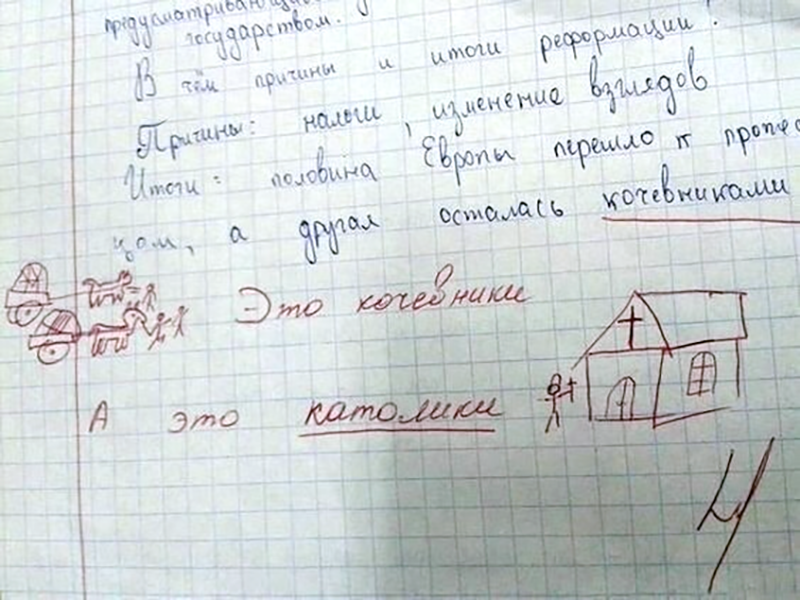 предусматривающ
государством.
В чём причины и итоги реформации?
Причины: налоги, изменение взглядов
Итоги: половина Европы перешло к протес
цам, а другая осталась кочевниками
Это кочевники
А это католики
4